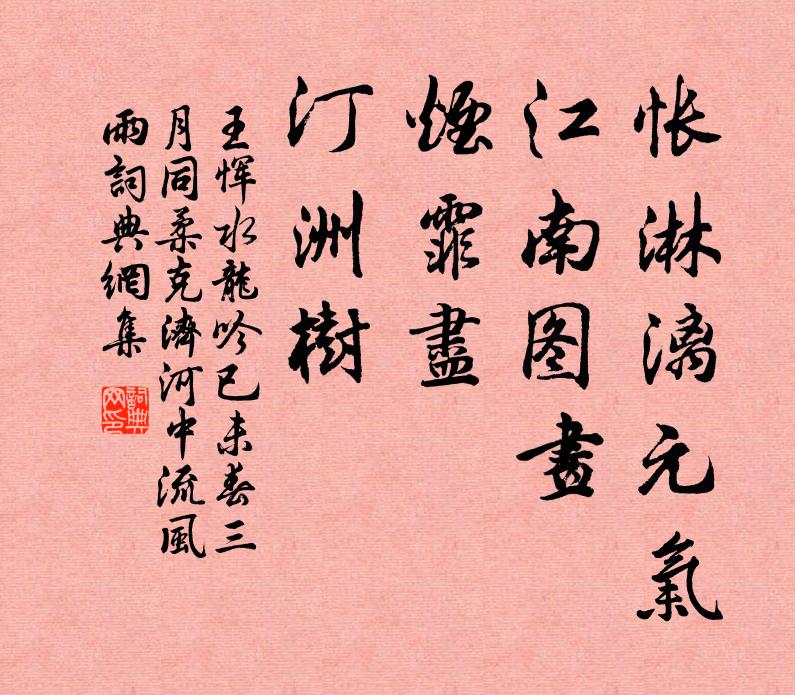 怅淋漓元氣
江南图畫
煙霏盡
汀洲樹
王恽水龍吟已未春三
月同柔克濟河中流風
雨詞典網集
詞典网印